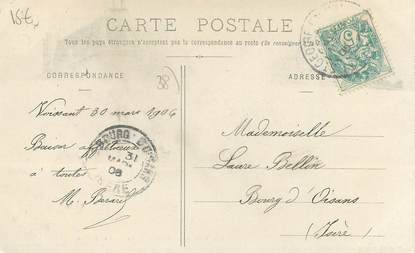 15t,
CARTE POSTALE
Tous les pays étrangers n'acceptent pas la correspondance au recto (Se renseigner
CORRESPONDANCE
38
ADRESSE
5
Voissant 30 mars 1906
Baiser affectueux
à toutes
M.
BOURG-D'OISANS
31
MARS
06
ISERE
Mademoiselle
Laure Bellin
Bourg d'Oisans
(Isère)